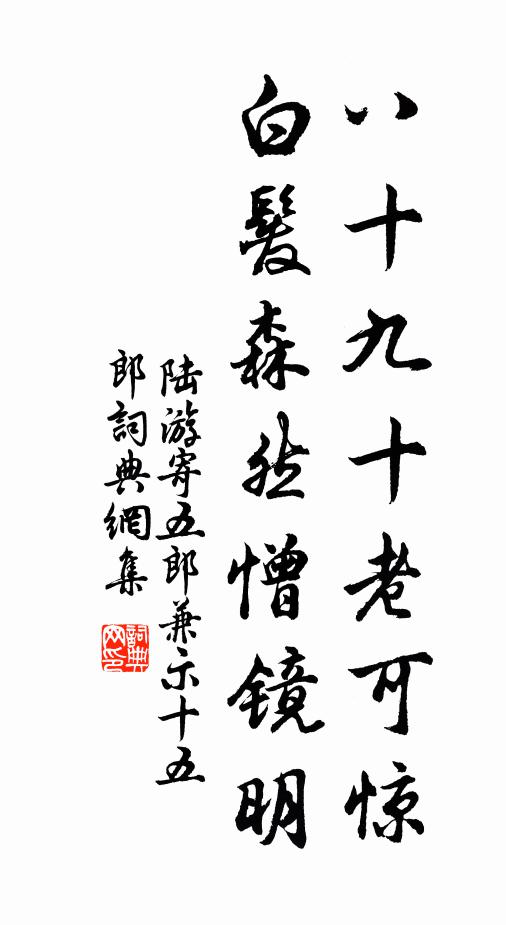 八十九十老可惊
白髮森然憎镜明
陆游寄五郎兼示十五
郎詞典網集
詞典
网印